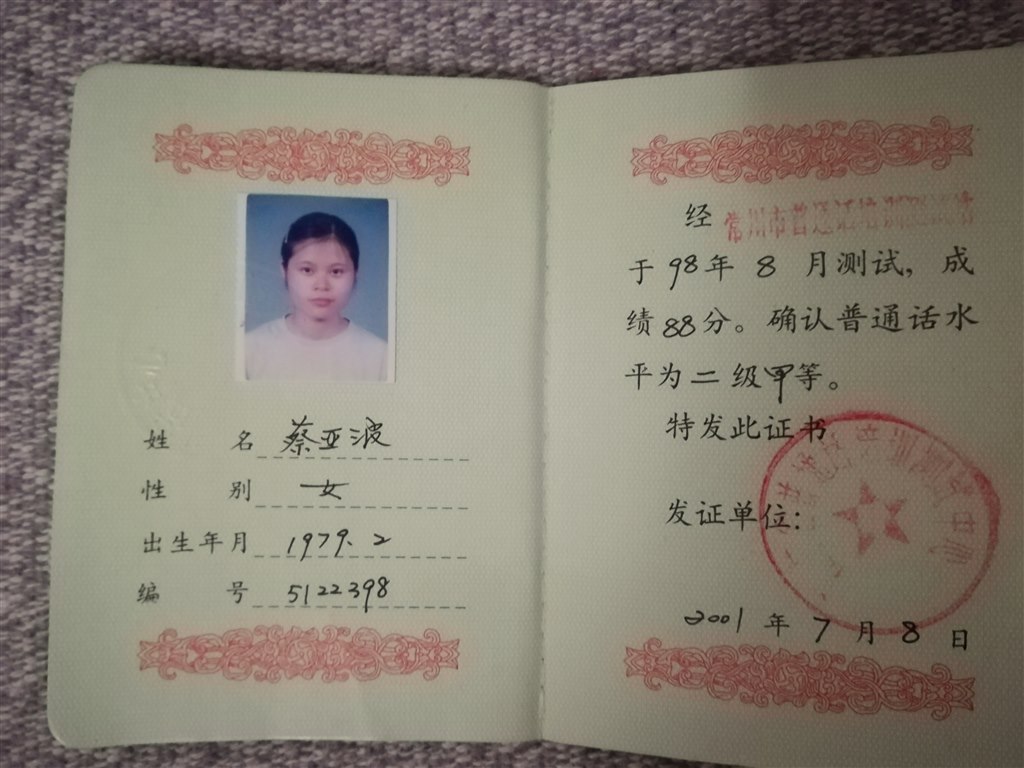 姓 名 蔡亚波
性 别 女
出生年月 1979.2
编 号 5122398
经 常州市普通话培训测试
于98年8月测试，成
绩88分。确认普通话水
平为二级甲等。
特发此证书
发证单位：
2001年7月8日